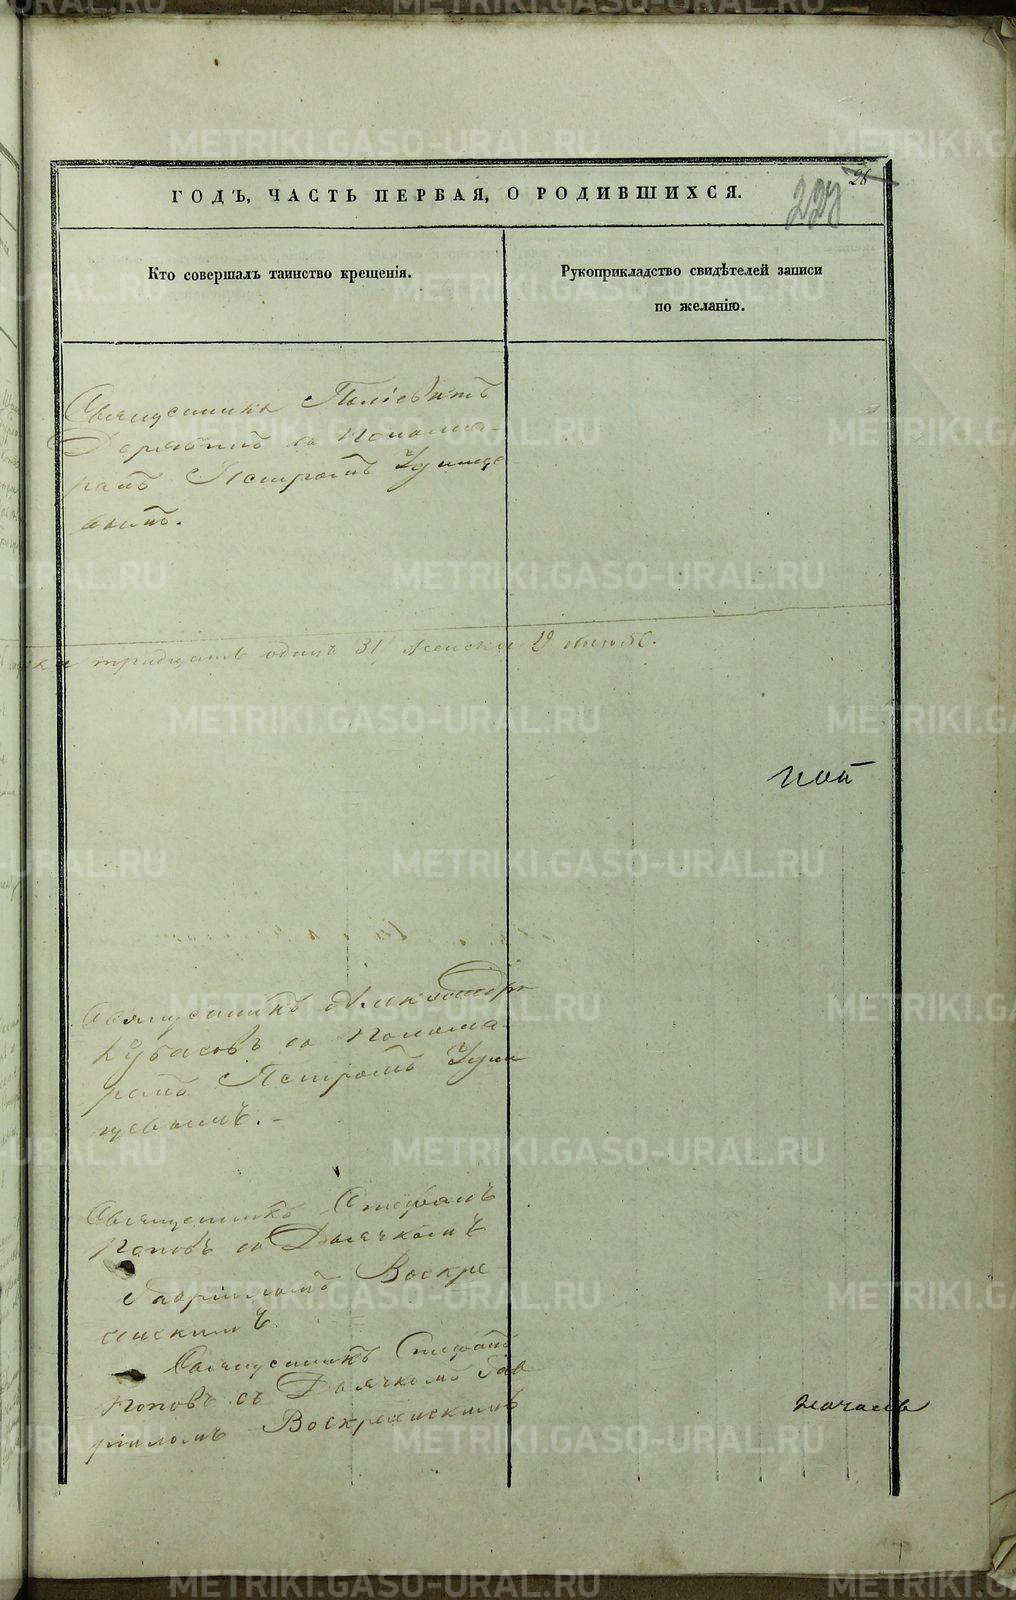 ГОДЪ, ЧАСТЬ ПЕРВАЯ, О РОДИВШИХСЯ.
28
Кто совершалъ таинство крещенія.
Рукоприкладство свидѣтелей записи
по желанію.
Священникъ
со Понома-
ремъ Петромъ Удинце
вымъ.
тридцать одинъ 31 женска 19
ной
Священникъ Александръ
Кубасовъ со Понома
ремъ Петромъ Удин
цевымъ.
Священникъ Стефанъ
Поповъ со Дьячкомъ
Гавріиломъ Воскре
сенскимъ.
Священникъ Стефанъ
Поповъ съ Дьячкомъ Гав
ріиломъ Воскресенскимъ
METRIKI.GASO-URAL.RU